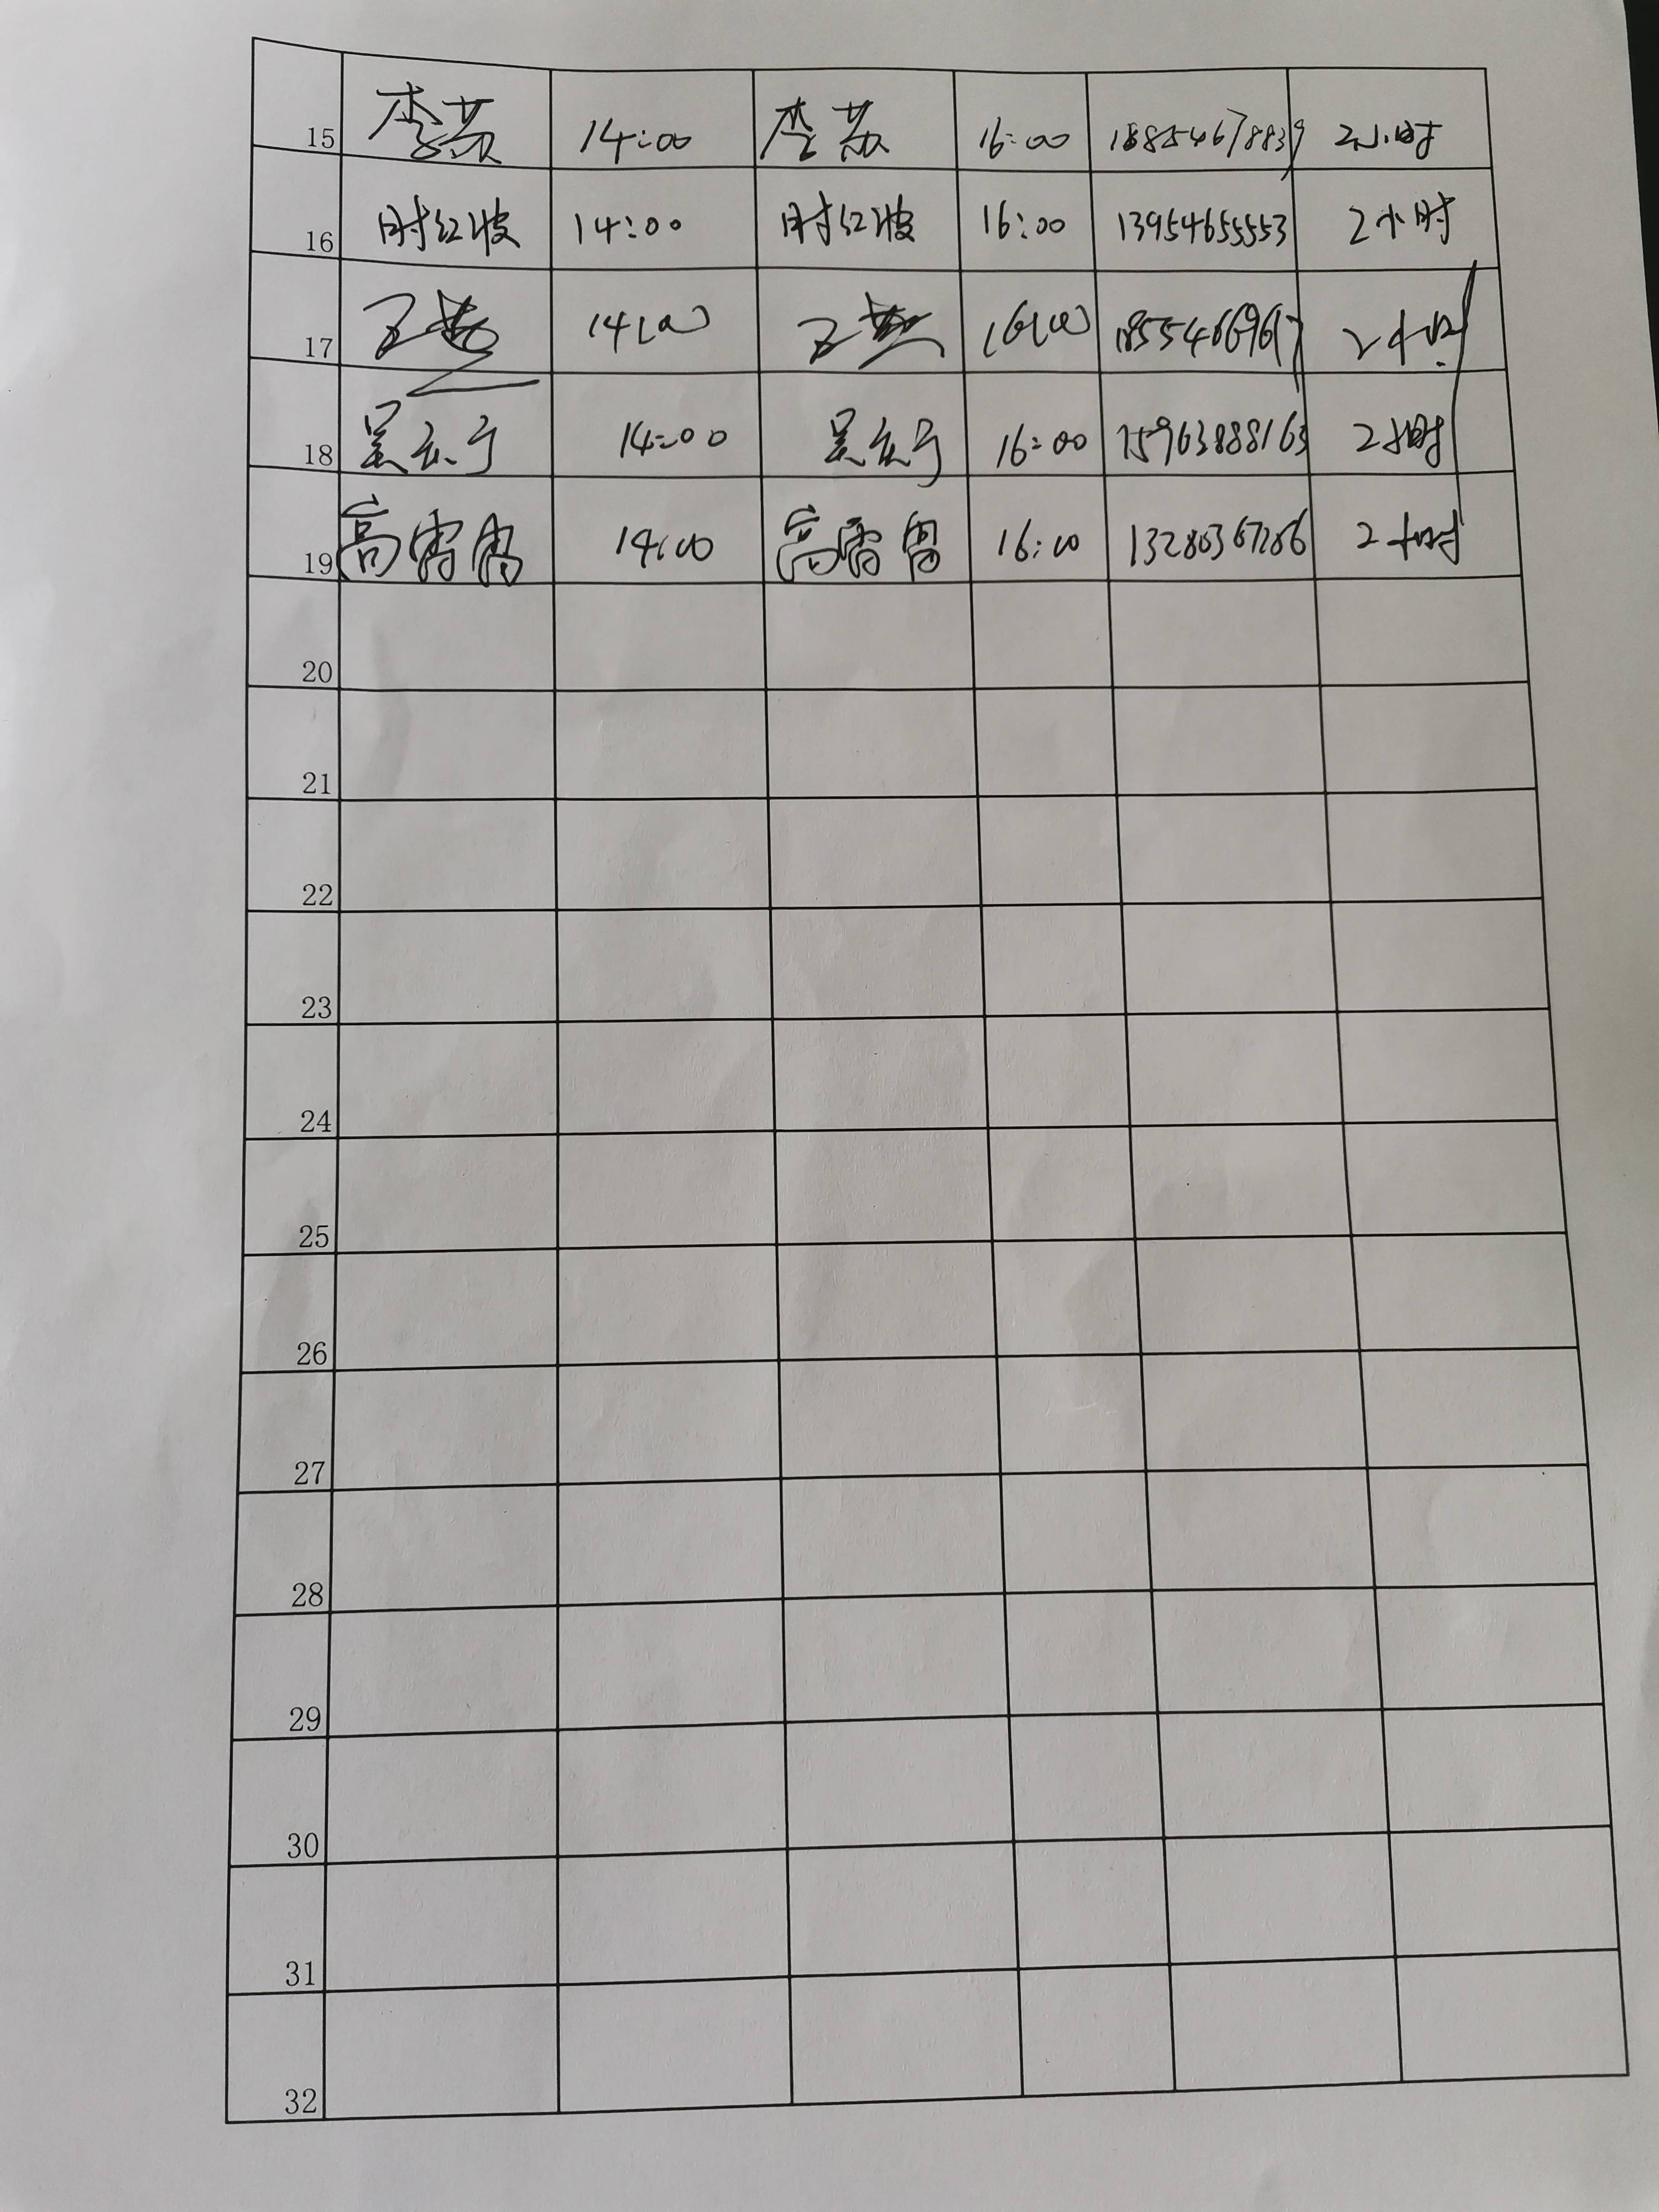 15 李 14:00 李 16:00 18854678839 2小时
16 时红波 14:00 时红波 16:00 13954655553 2小时
17 王 14:00 王 16:00 2小时
18 吴 14:00 吴 16:00 15963888163 2小时
19 高雷雷 14:00 高雷雷 16:00 2小时
20
21
22
23
24
25
26
27
28
29
30
31
32